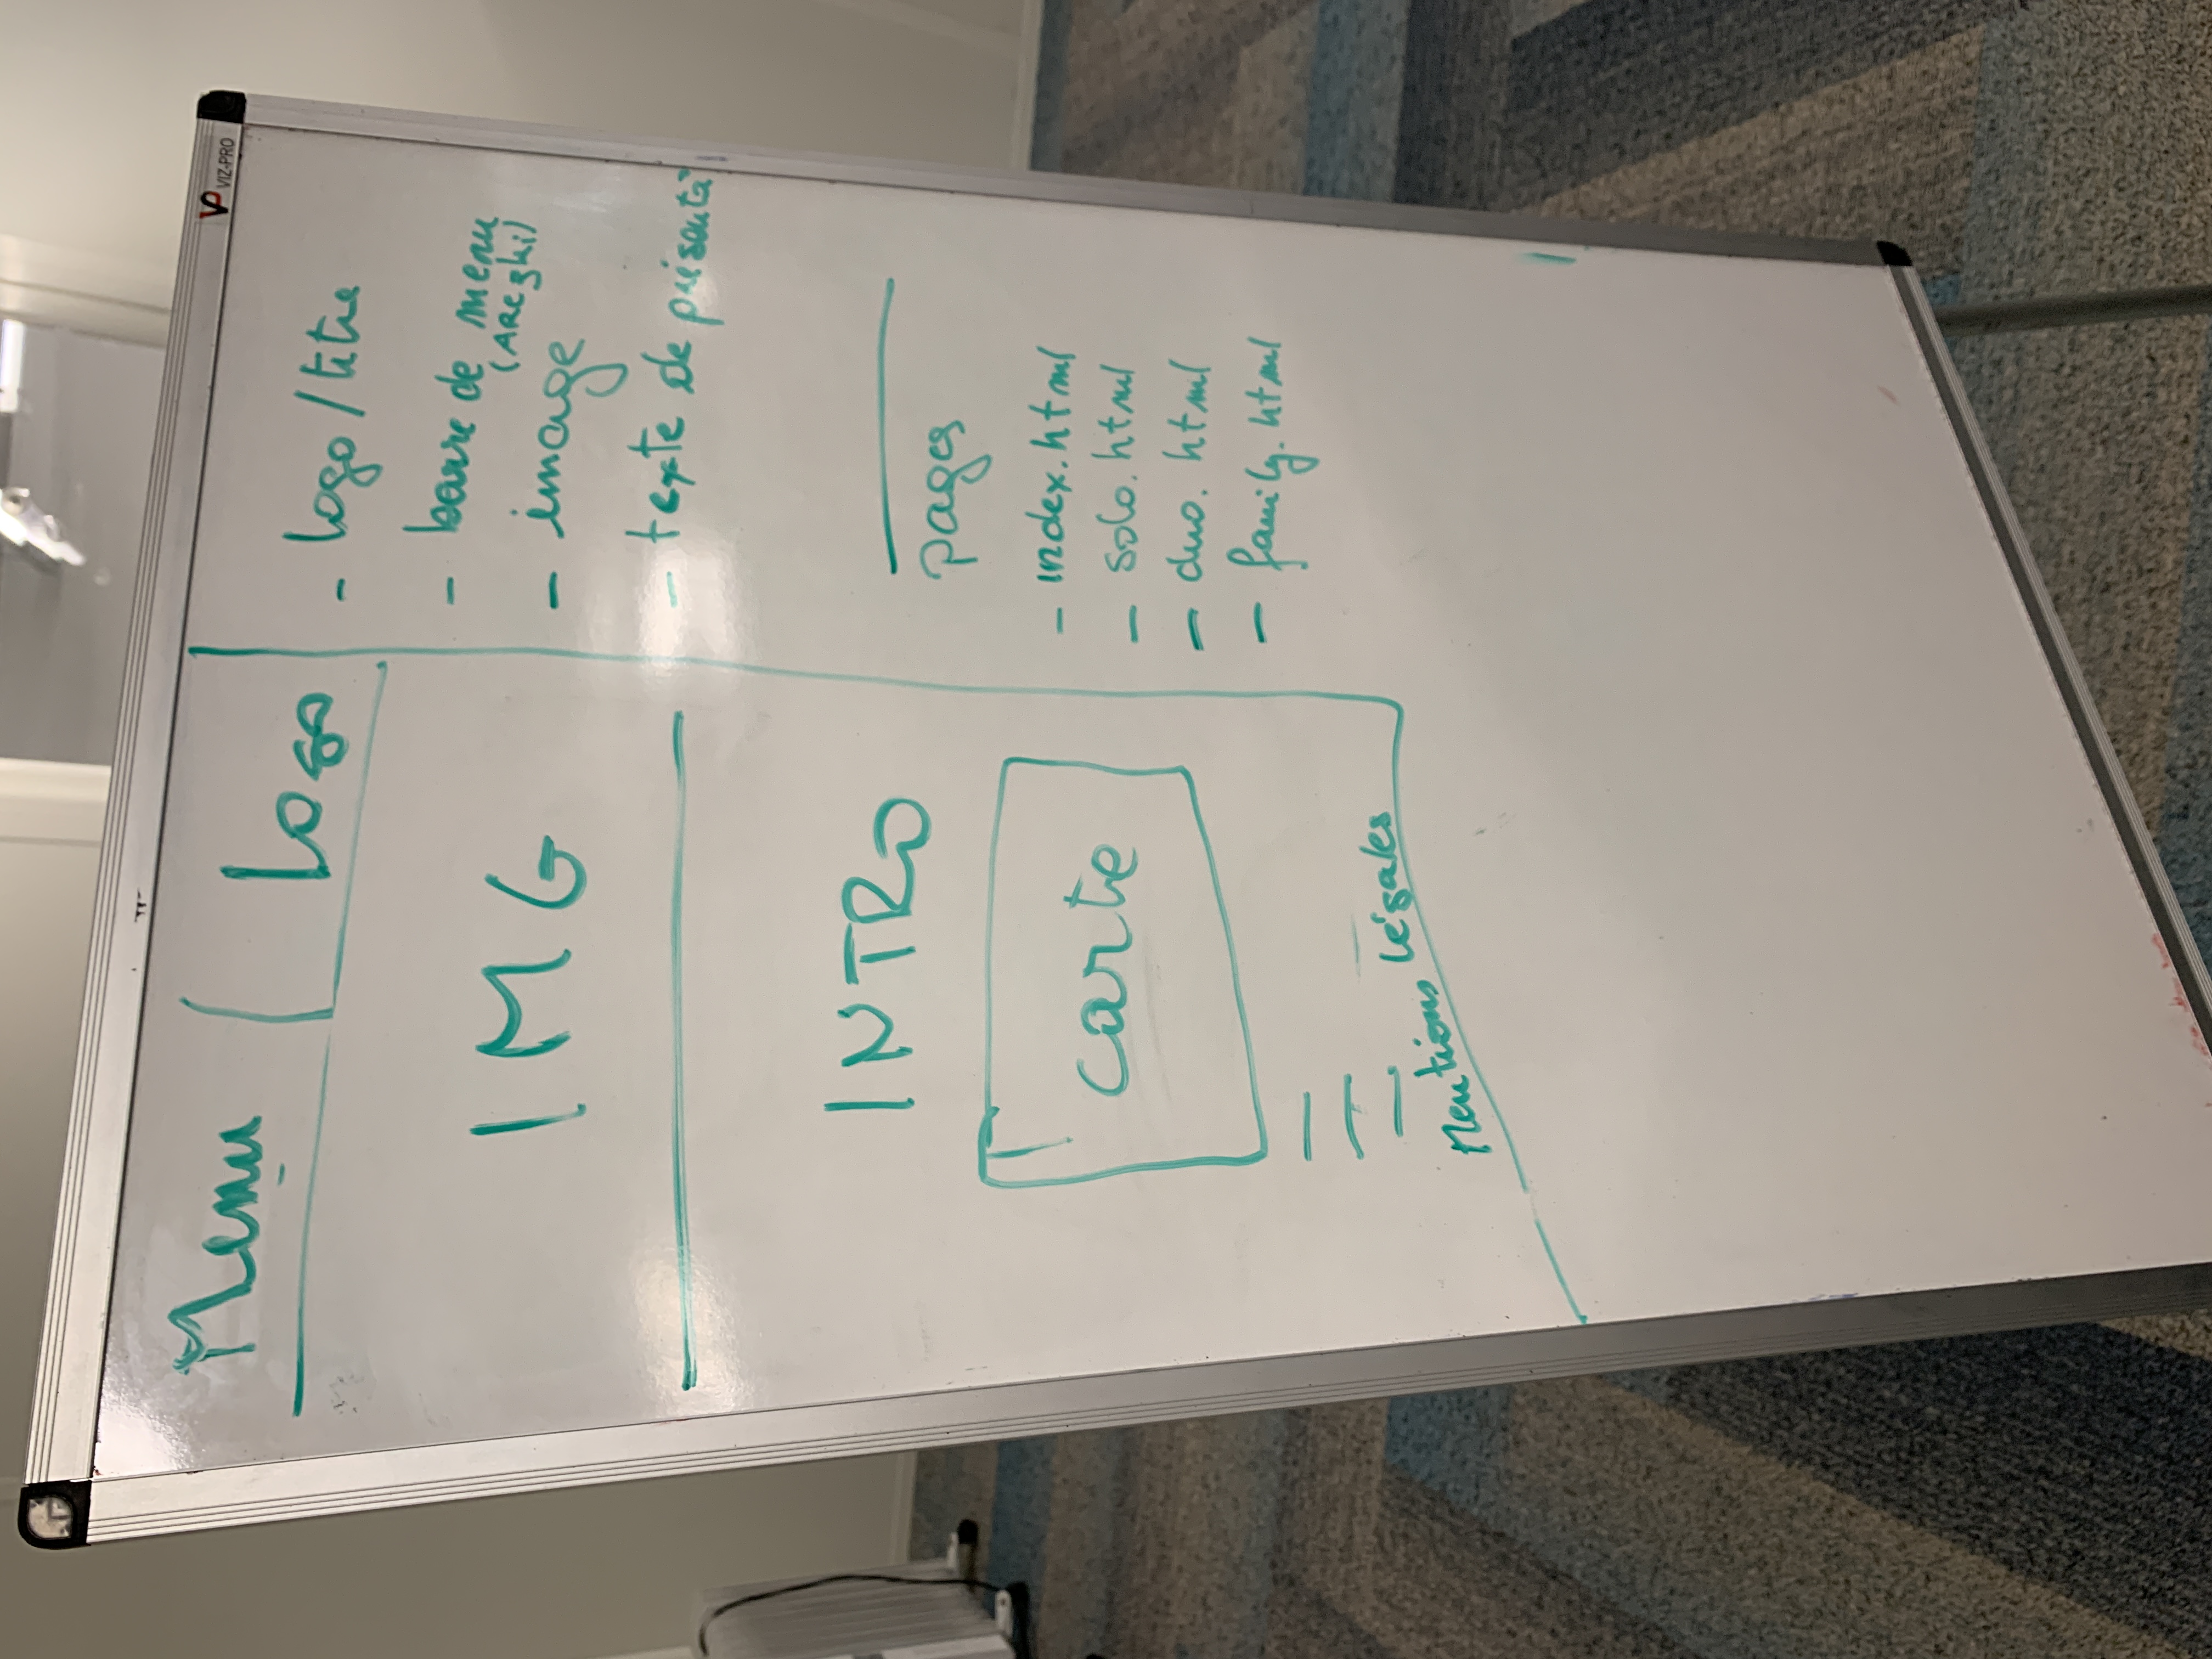 VIZ-PRO
Menu
Logo
IMG
INTRO
carte
Mentions légales
- logo / titre
- barre de menu
(AREzki)
- image
- texte de présentat°
pages
- index.html
- solo.html
- duo.html
- family.html